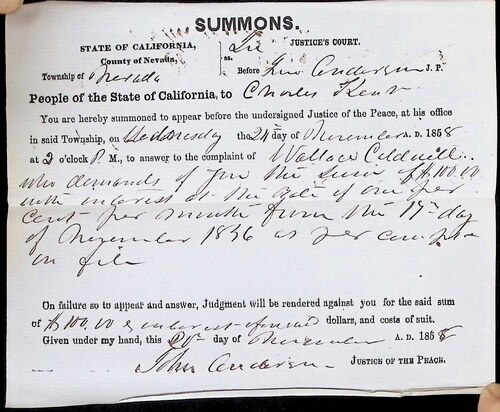 SUMMONS.
STATE OF CALIFORNIA, In JUSTICE'S COURT.
County of Nevada, ss.
Township of Nevada Before Jno Anderson J. P.
People of the State of California, to Charles Kent
You are hereby summoned to appear before the undersigned Justice of the Peace, at his office
in said Township, on Wednesday the 24th day of November A. D. 1858
at 2 o'clock P. M., to answer to the complaint of Wallace Caldwell
who demands of you the sum of $100.00
with interest at the rate of one per
cent per month from the 17th day
of November 1856 as per compt
on file
On failure so to appear and answer, Judgment will be rendered against you for the said sum
of $100.00 & interest aforesaid dollars, and costs of suit.
Given under my hand, this 20th day of November A. D. 1858
John Anderson JUSTICE OF THE PEACE.